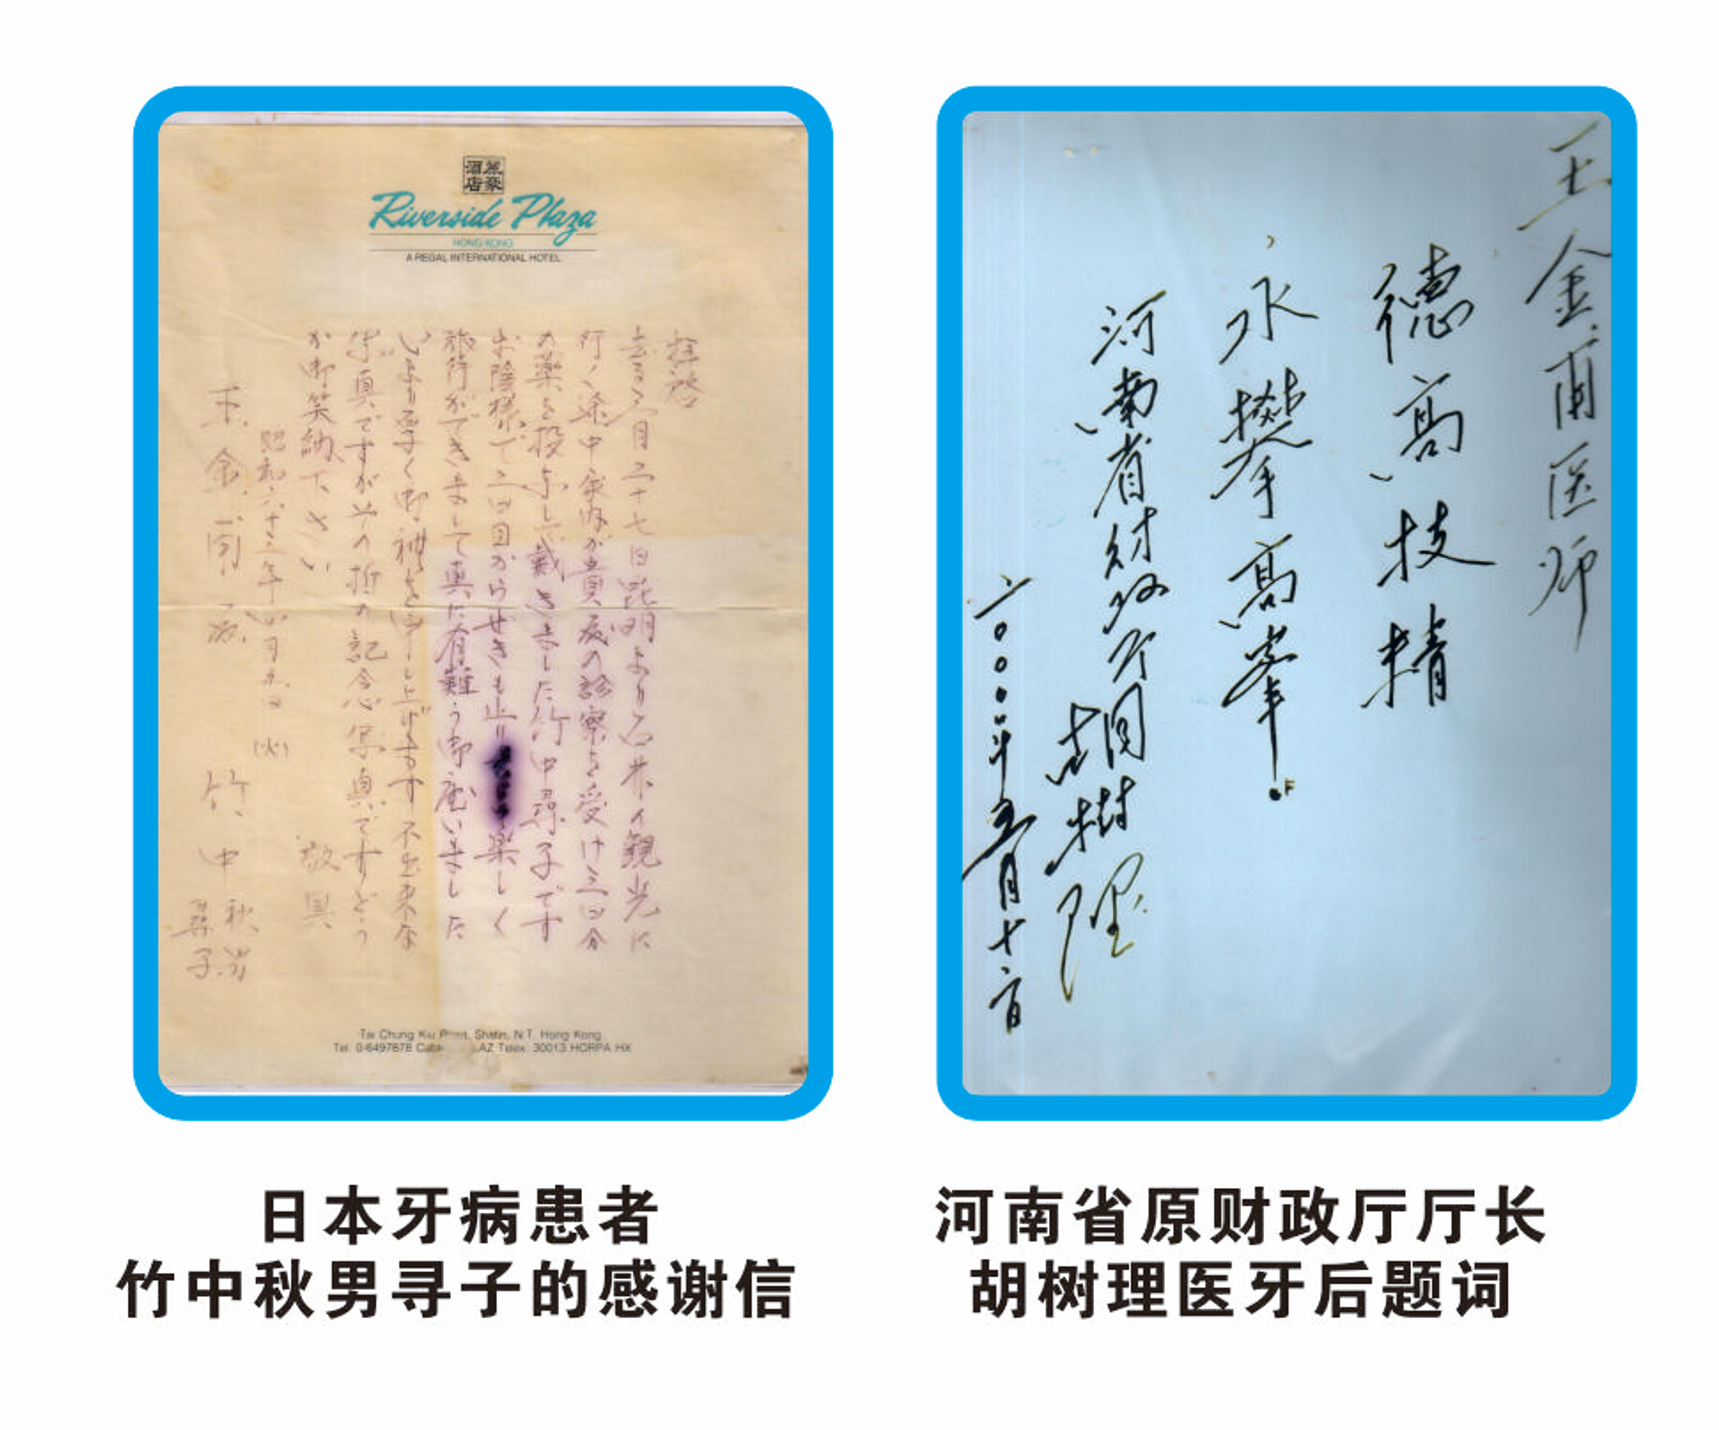 麗豪
酒店
Riverside Plaza
HONG KONG
A REGAL INTERNATIONAL HOTEL
拝啓
去る三月二十七日昆明より石林の観光に
行く途中家内が貴殿の診察を受け三日分
の薬を投与して戴きました竹中尋子です
お陰様で三日目からせきも止り 楽しく
旅行ができまして真に有難う御座いました
いまり厚く御礼を申し上げます 不出来な
写真ですがその折の記念写真ですどう
か御笑納下さい
敬具
昭和六十三年四月 日(火)
竹中秋男
尋子
王金甫
Tai Chung Kiu Road, Shatin, N.T. Hong Kong
Tel: 0-6497878 Telex: 30013 HORPA HX
王金甫医师
德高技精
永攀高峰
河南省财政厅
胡树理
二〇〇〇年五月十六日
日本牙病患者
竹中秋男寻子的感谢信
河南省原财政厅厅长
胡树理医牙后题词